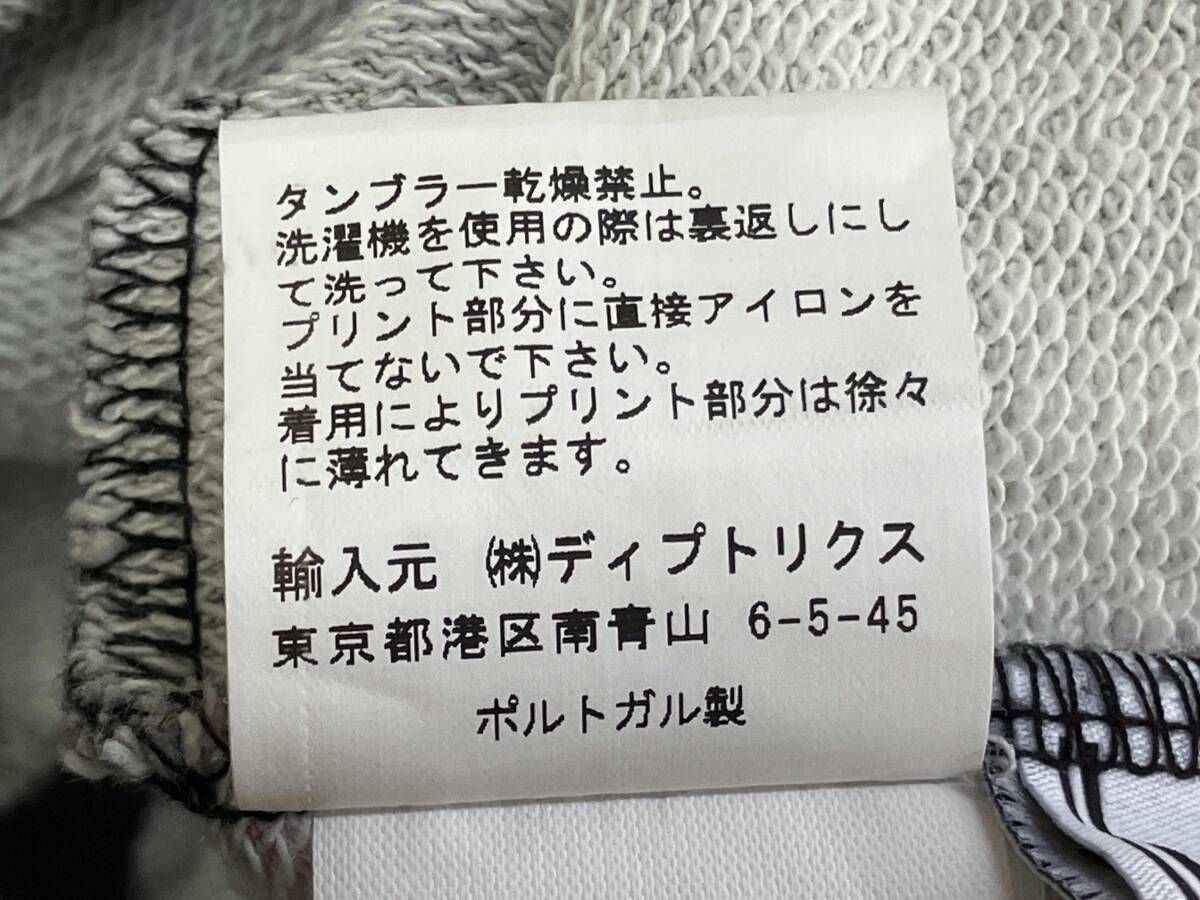 タンブラー乾燥禁止。
洗濯機を使用の際は裏返しにし
て洗って下さい。
プリント部分に直接アイロンを
当てないで下さい。
着用によりプリント部分は徐々
に薄れてきます。
輸入元 ㈱ディプトリクス
東京都港区南青山 6-5-45
ポルトガル製